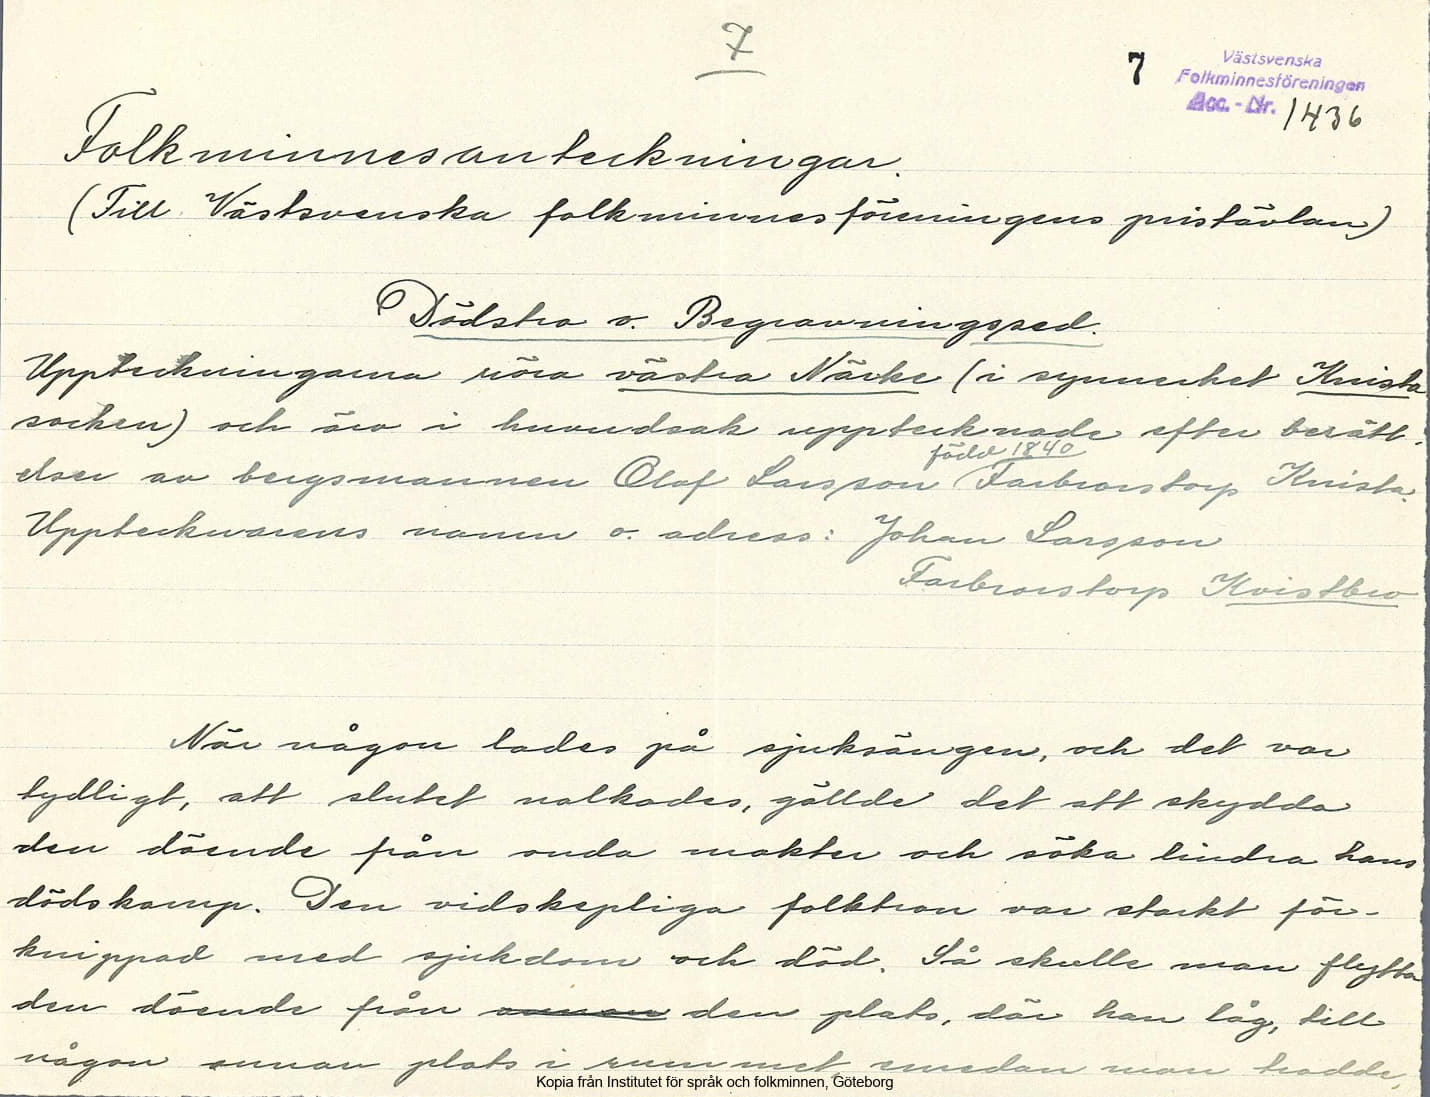 7
7
Västsvenska
Folkminnesföreningen
Acc.-Nr. 1436
Folkminnesanteckningar.
(Till Västsvenska folkminnesföreningens pristävlan)
Dödstro o. Begravningssed.
Uppteckningarna röra västra Närke (i synnerhet Knista
socken) och äro i huvudsak upptecknade efter berätt-
född 1840
elser av bergsmannen Olof Larsson Farbrorstorp Knista.
Upptecknarens namn o. adress: Johan Larsson
Farbrorstorp Kvistbro
När någon lades på sjuksängen, och det var
tydligt, att slutet nalkades, gällde det att skydda
den döende från onda makter och söka lindra hans
dödskamp. Den vidskepliga folktron var starkt för-
knippad med sjukdom och död. Så skulle man flytta
den döende från den plats, där han låg, till
någon annan plats i rummet, emedan man trodde,
Kopia från Institutet för språk och folkminnen, Göteborg